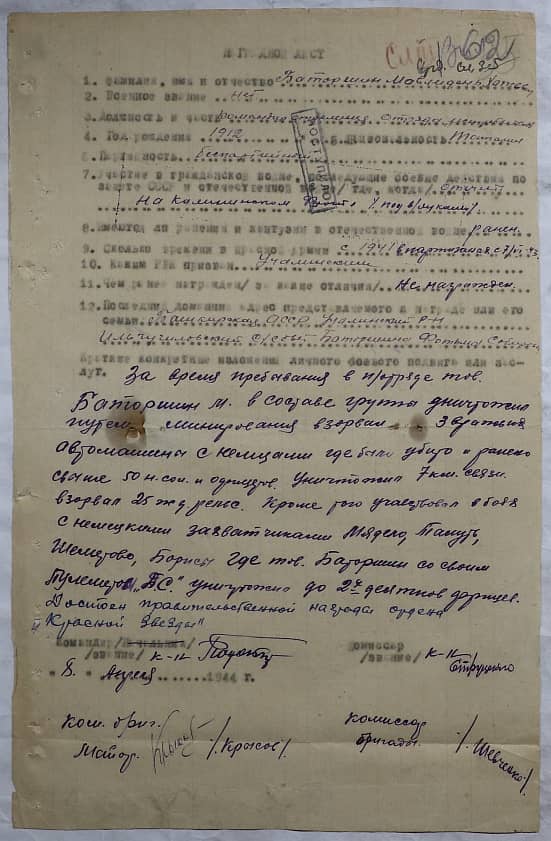 НАГРАДНОЙ ЛИСТ
1. Фамилия, имя и отчество Баторшин
2. Военное звание нет
3. Должность и часть
4. Год рождения 1912 5. Национальность Татарин
6. Партийность беспартийный
7. Участие в гражданской войне, последующие боевые действия по
защите СССР и отечественной войне/где, когда/
На Калининском фронте
8. Имеются ли ранения и контузии в отечественной войне ранен
9. Сколько времени в красной армии с 1941 в партизанах с
10. Каким РВК призван Учалинским
11. Чем ранее награжден/за какие отличия/ Не награжден
12. Последний домашний адрес представляемого к награде или его
семьи Башкирская АССР Учалинский р-н
Баторшина
Краткие конкретные изложения личного боевого подвига или зас-
луг. За время пребывания в п/отряде тов.
Баторшин М. в составе группы уничтожил
путем минирования взорвал 3 вражьих
автомашины с немцами где было убито и ранено
свыше 50 н. сол. и офицеров. Уничтожил 7 км. связи.
взорвал 25 ж/д рельс. Кроме того участвовал в боях
с немецкими захватчиками Мядель,
Шеметово, Борисы где тов. Баторшин со своим
пулеметом уничтожил до 2х десятков фрицев.
Достоин правительственной награды ордена
„Красной Звезды"
Командир/Начальник/ Комиссар
/звание/ к-н /звание/ к-н
"8." Апреля 1944 г.
Ком. бриг. Комиссар
Майор /Крысов/ бригады /Шевченко/